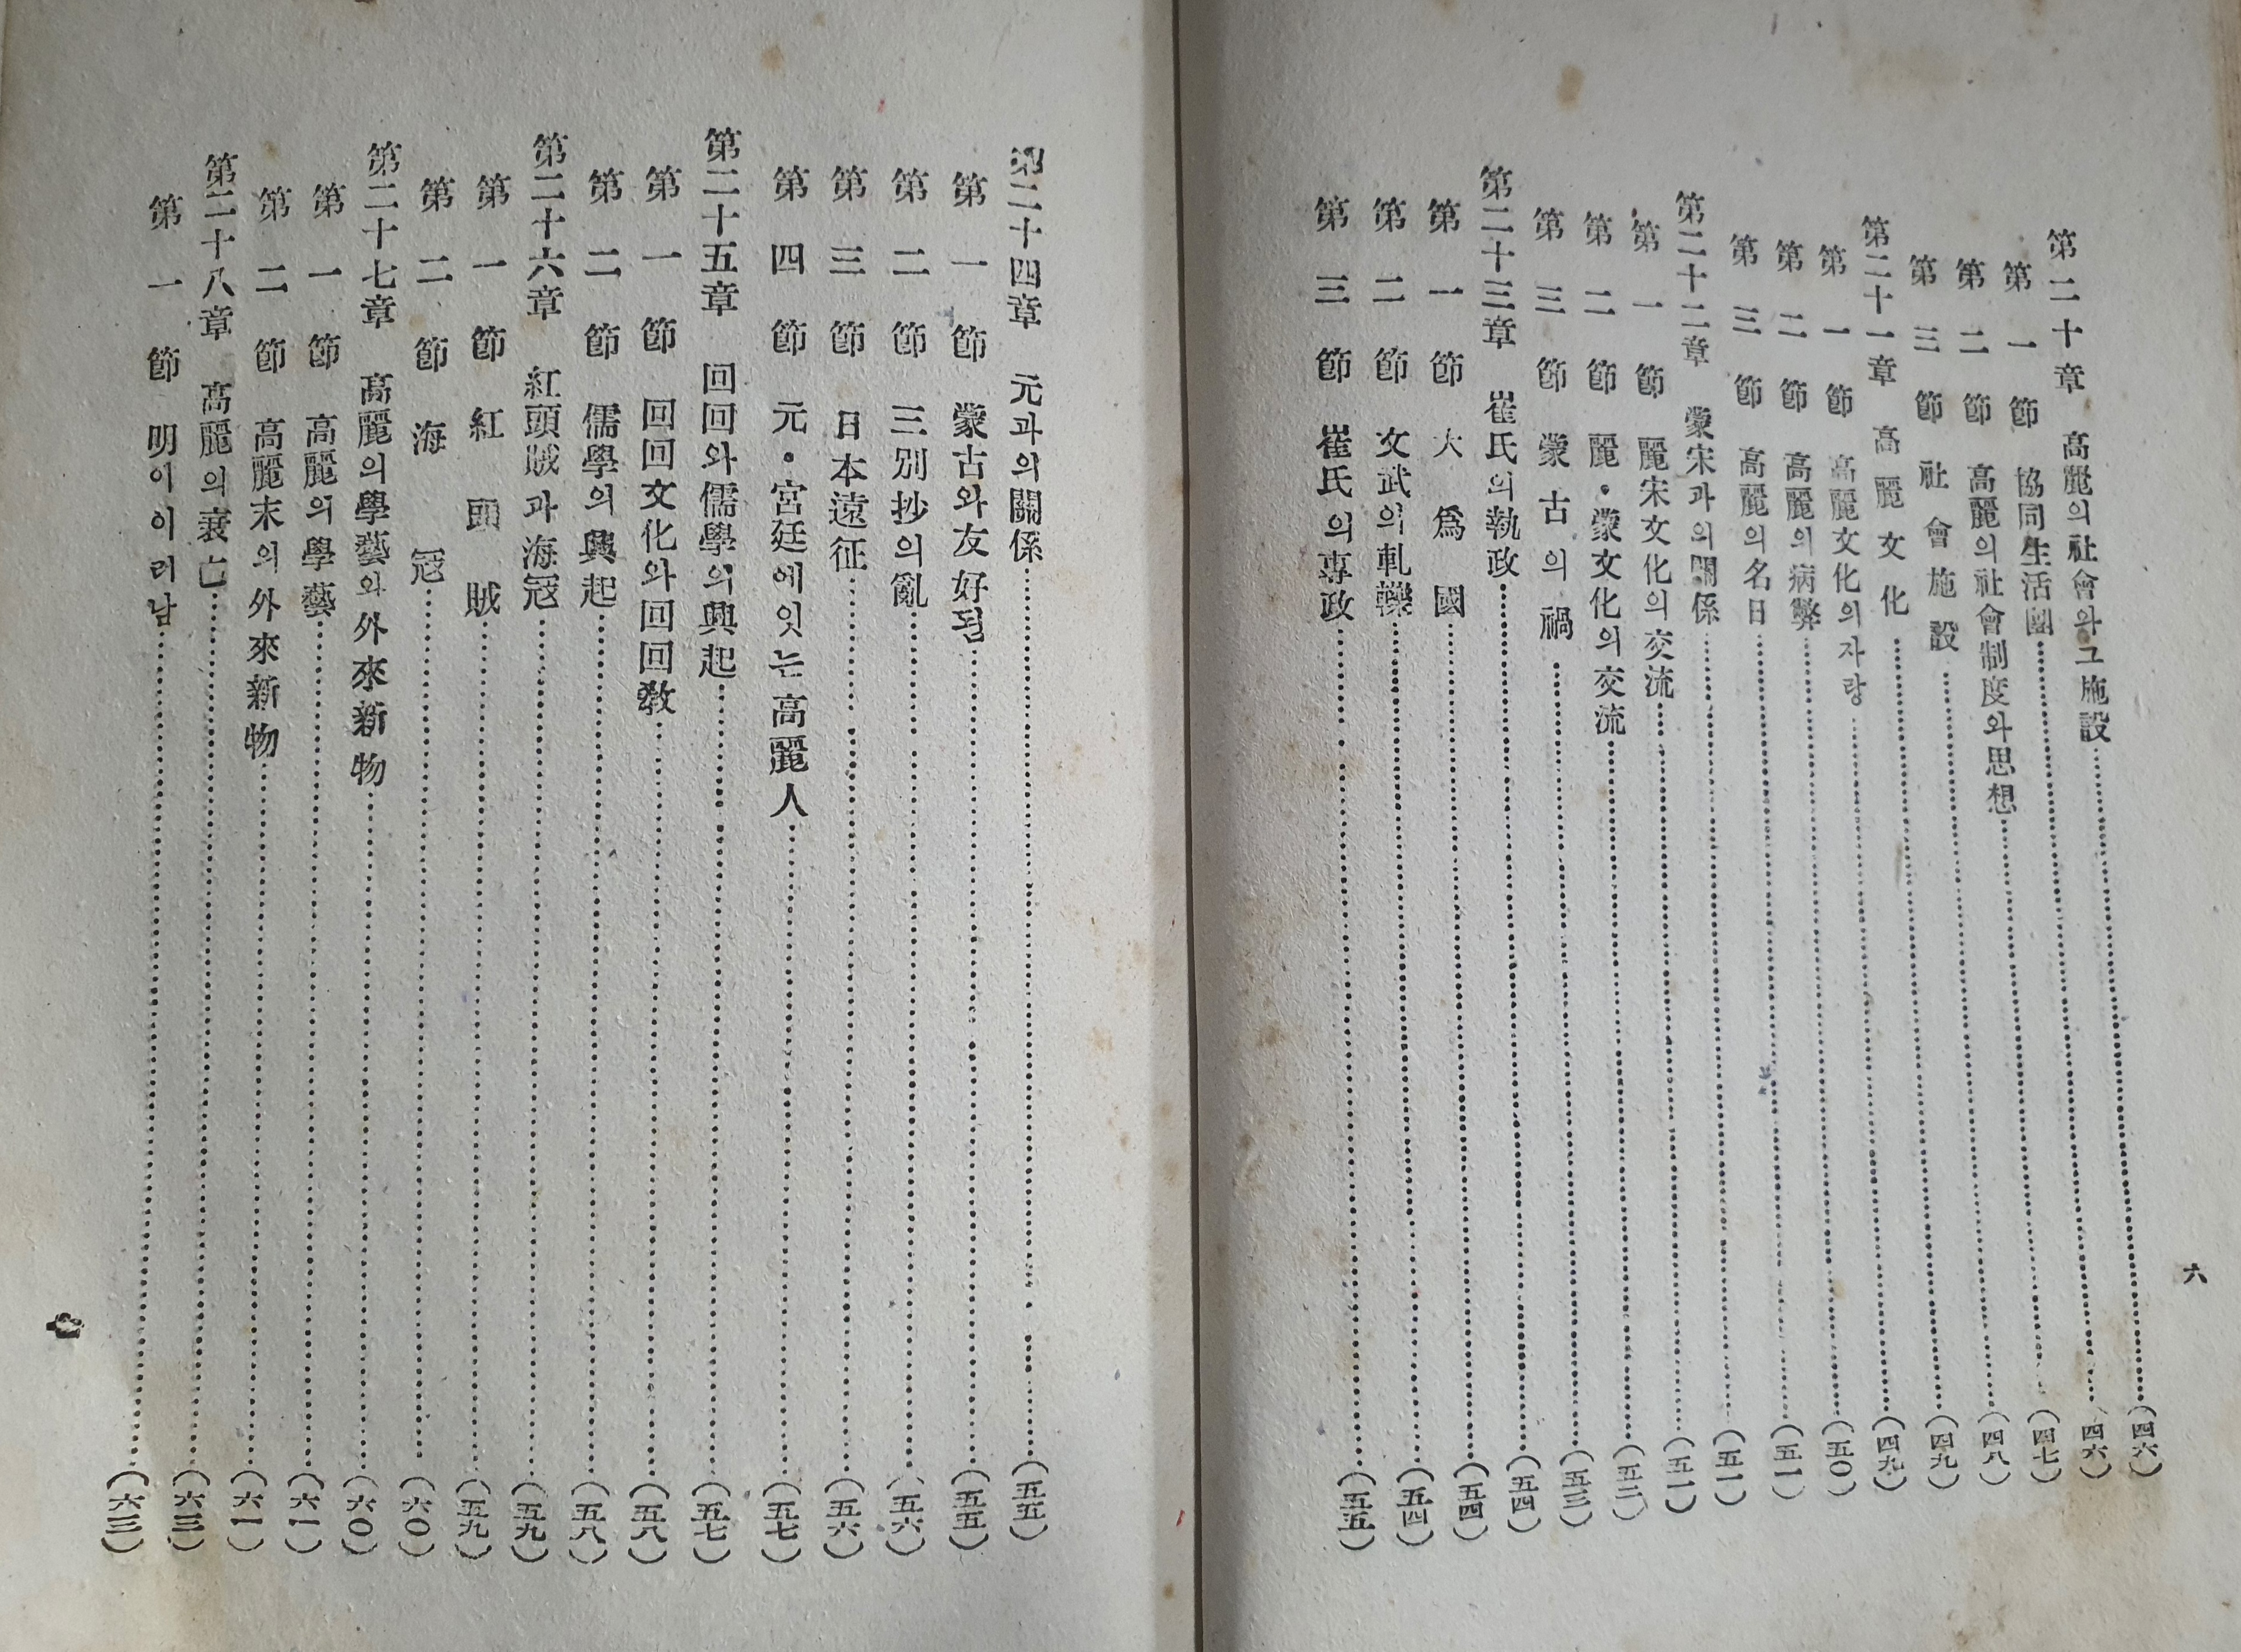 六
第二十章 高麗의社會와그施設 (四六)
第一節 協同生活團 (四六)
第二節 高麗의社會制度와思想 (四七)
第三節 社會施設 (四八)
第二十一章 高麗文化 (四九)
第一節 高麗文化의자랑 (四九)
第二節 高麗의病弊 (五〇)
第三節 高麗의名日 (五一)
第二十二章 蒙宋과의關係 (五一)
第一節 麗宋文化의交流 (五一)
第二節 麗·蒙文化의交流 (五二)
第三節 蒙古의禍 (五三)
第二十三章 崔氏의執政 (五四)
第一節 大爲國 (五四)
第二節 文武의軋轢 (五四)
第三節 崔氏의專政 (五五)
第二十四章 元과의關係 (五五)
第一節 蒙古와友好됨 (五五)
第二節 三別抄의亂 (五六)
第三節 日本遠征 (五六)
第四節 元·宮廷에잇는高麗人 (五七)
第二十五章 回回와儒學의興起 (五七)
第一節 回回文化와回回敎 (五八)
第二節 儒學의興起 (五八)
第二十六章 紅頭賊과海冦 (五九)
第一節 紅頭賊 (五九)
第二節 海冦 (六〇)
第二十七章 高麗의學藝와外來新物 (六〇)
第一節 高麗의學藝 (六一)
第二節 高麗末의外來新物 (六一)
第二十八章 高麗의衰亡 (六三)
第一節 明이이러남 (六三)
七